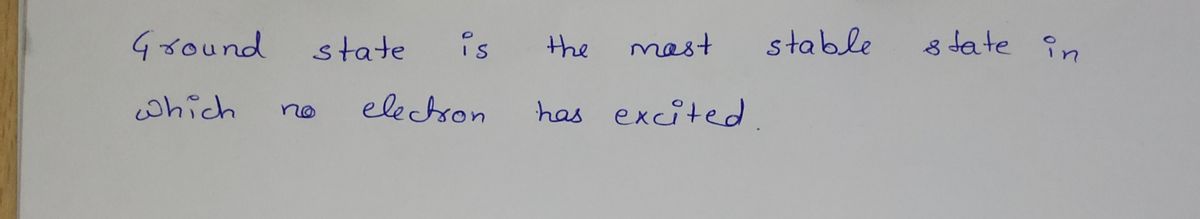 Ground state is the most stable state in
which no electron has excited.